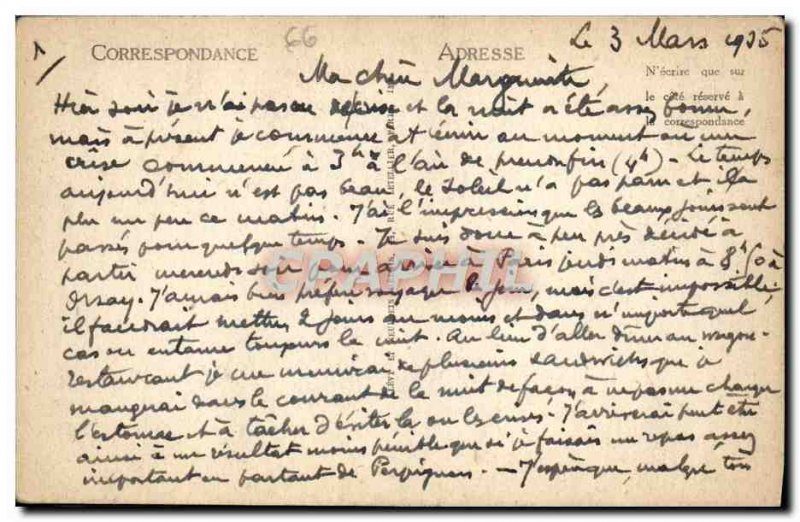 66
CORRESPONDANCE ADRESSE
Le 3 Mars 1935
N'écrire que sur
le côté réservé à
la correspondance
Ma chère Marguerite,
Hier soir je n'ai pas eu de crise et la nuit a été assez bonne,
mais à présent je commence à t'écrire au moment où une
crise commencée à 3h a l'air de prendre fin (4h). Le temps
aujourd'hui n'est pas beau, le soleil n'a pas paru et il a
plu un peu ce matin. J'ai l'impression que les beaux jours sont
passés pour quelque temps. Je suis donc à peu près décidé à
partir mercredi soir pour à Paris jeudi matin à 8h50 à
Orsay. J'aurais bien préféré voyager le jour, mais c'est impossible,
il faudrait mettre 2 jours au moins et dans n'importe quel
cas on entame toujours la nuit. Au lieu d'aller dîner au wagon-
restaurant je me munirai de plusieurs sandwichs que je
mangerai dans le courant de la nuit de façon à ne pas me charger
l'estomac et à tâcher d'éviter la ou les crises. J'arriverai peut-être
ainsi à un résultat moins pénible que si je faisais un repas assez
important en partant de Perpignan. — J'espère que, malgré ton
CPAPHIL